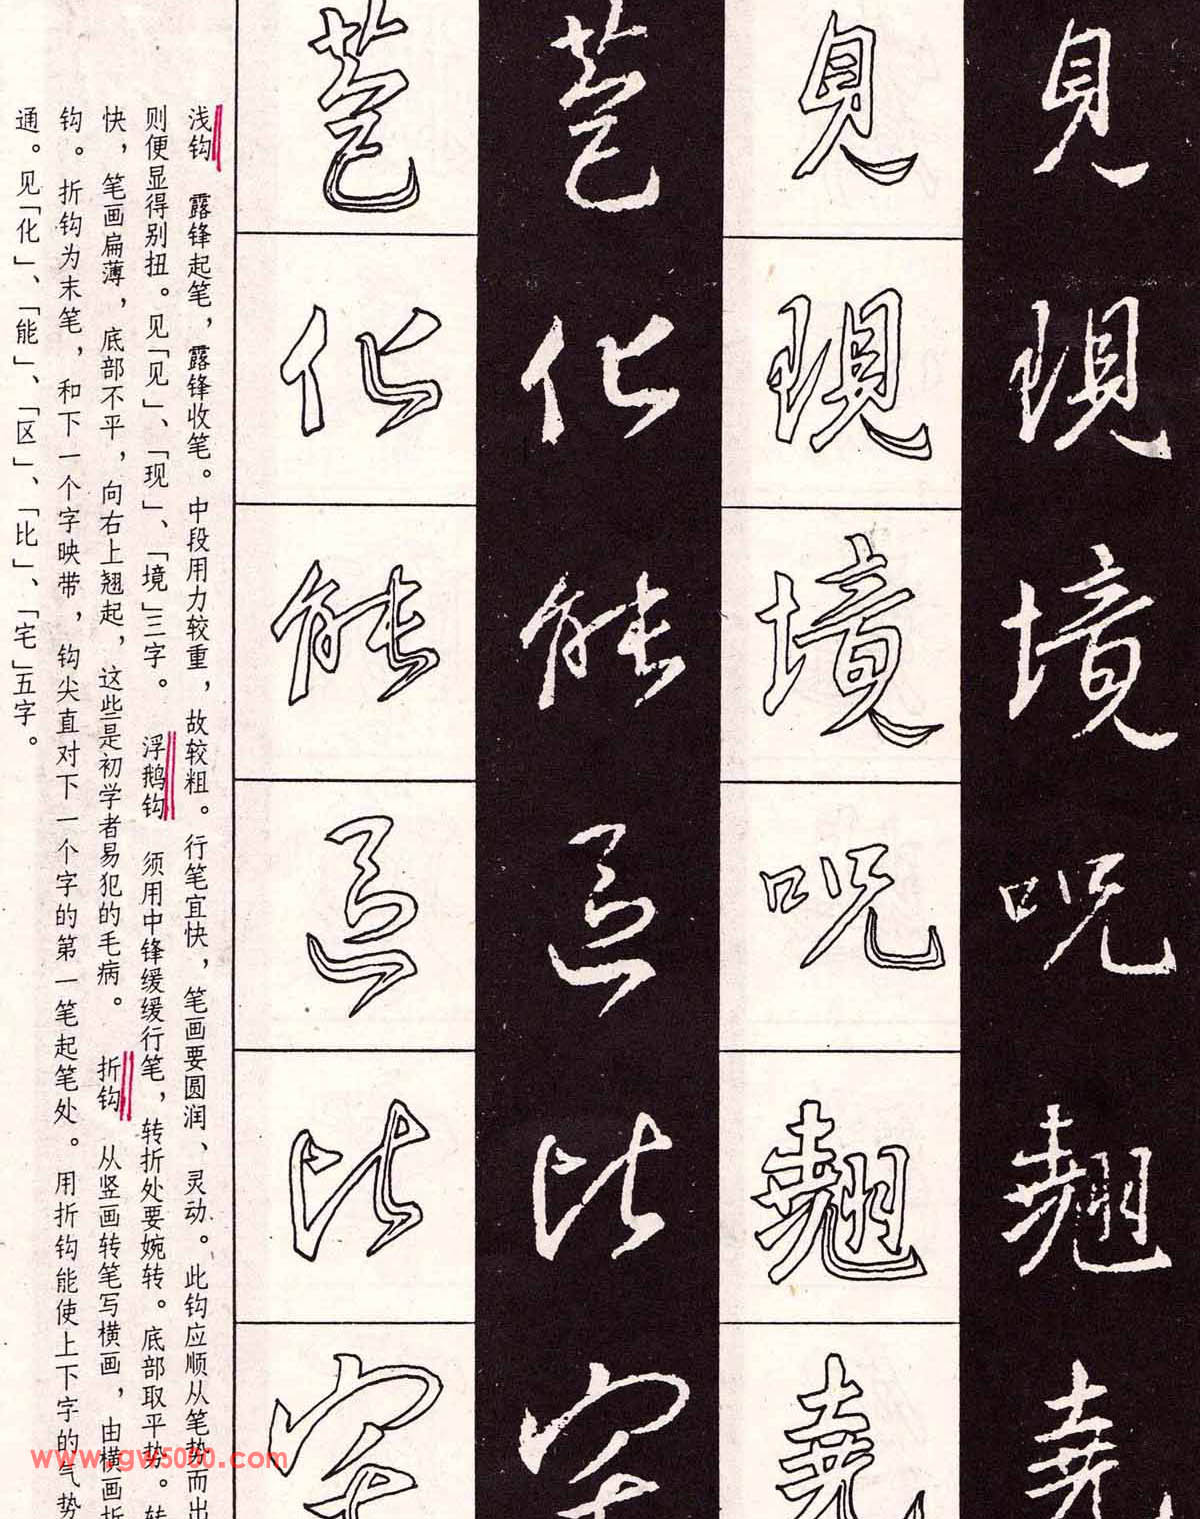 見
現
境
呪
翹
堯
見
現
境
呪
翹
堯
化
能
比
宅
化
能
比
宅
浅钩 露锋起笔，露锋收笔。中段用力较重，故较粗。行笔宜快，笔画要圆润、灵动。此钩应顺从笔势而出
则便显得别扭。见「见」、「现」、「境」三字。 浮鹅钩 须用中锋缓缓行笔，转折处要婉转。底部取平势。转
快，笔画扁薄，底部不平，向右上翘起，这些是初学者易犯的毛病。 折钩 从竖画转笔写横画，由横画折
钩。折钩为末笔，和下一个字映带，钩尖直对下一个字的第一笔起笔处。用折钩能使上下字的气势
通。见「化」、「能」、「区」、「比」、「宅」五字。
www.gw5000.com